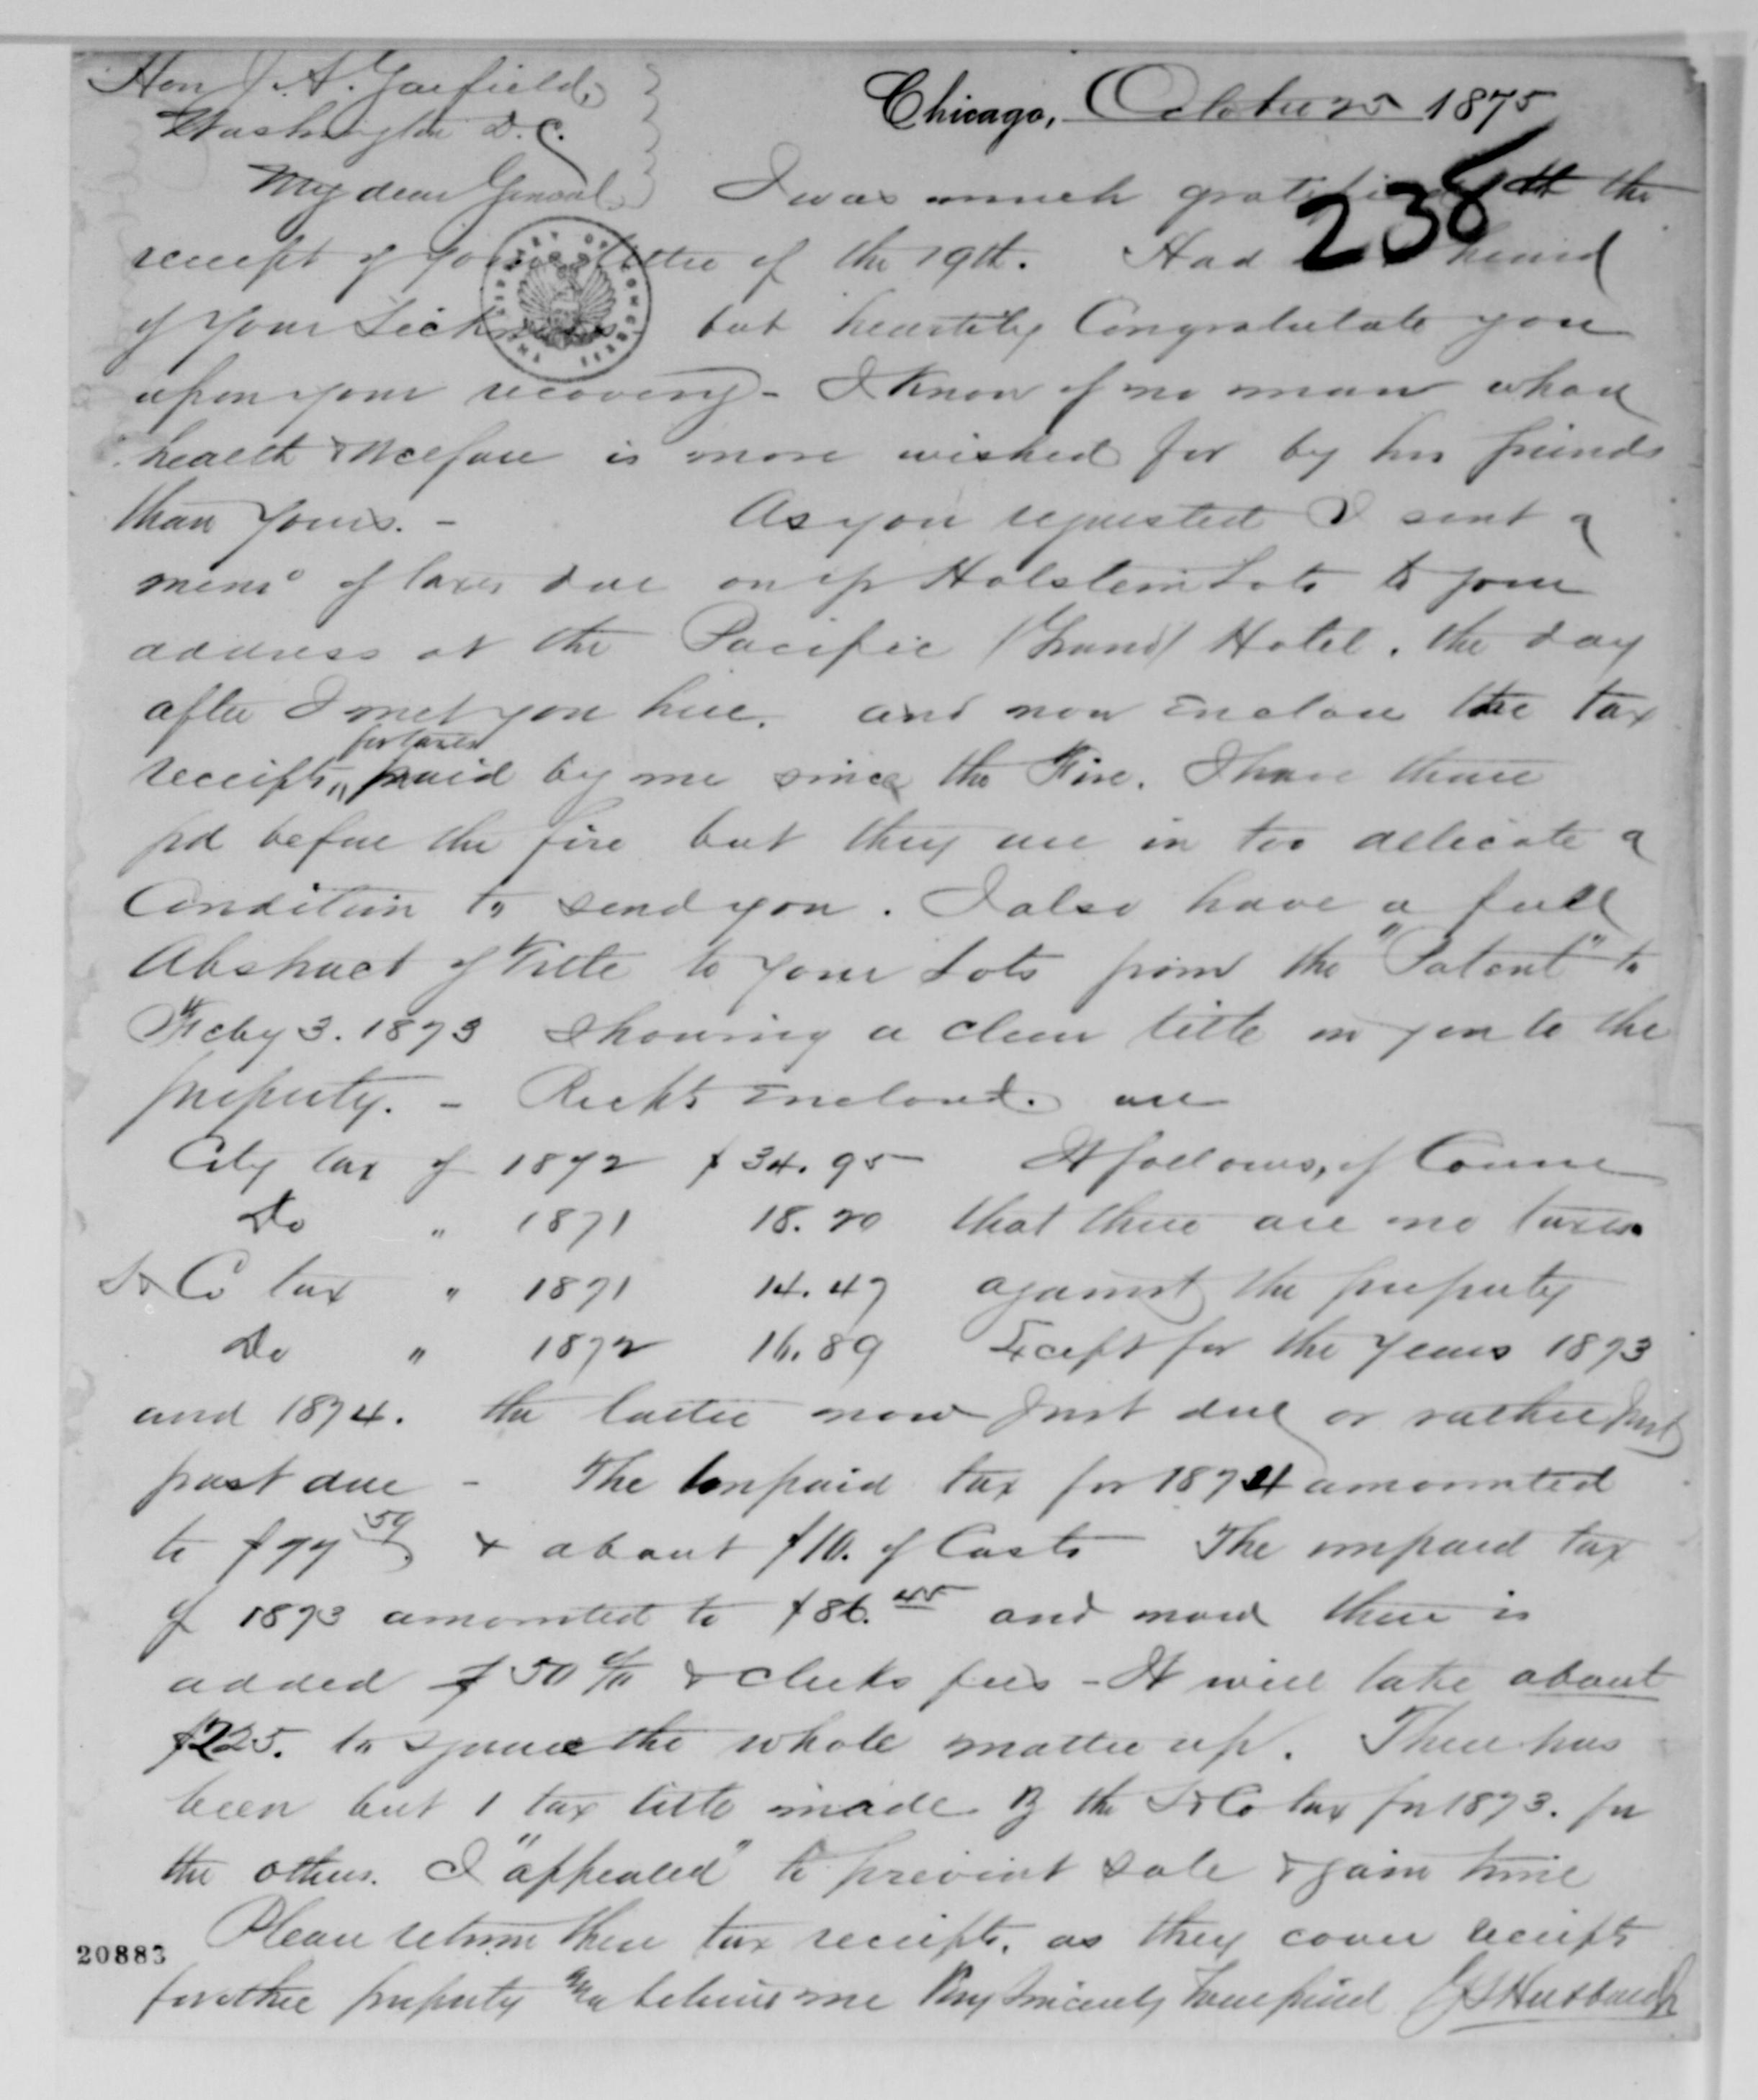 Hon J. A. Garfield,
Washington D.C.
Chicago, October 25 1875
238
My dear General, I was much gratified at the
receipt of your letter of the 19th. Had heard
of your Sickness but heartily Congratulate you
upon your recovery - I know of no man whose
health & Welfare is more wished for by his friends
than yours. - As you requested I sent a
memo of taxes due on yr Holstein Lots to your
address at the Pacific (Grand) Hotel, the day
after I met you here, and now Enclose the tax
for taxes
receipts, paid by me since the Fire. I have those
pd before the fire but they are in too delicate a
Condition to send you. I also have a full
Abstract of Title to your Lots from the "Patent" to
Feby 3. 1873 Showing a clear title in you to the
property. - Recpts Enclosed are
City tax of 1872 $34.95 It follows, of Course
Do " 1871 18.20 that there are no taxes
S & Co tax " 1871 14.47 against the property
Do " 1872 16.89 Except for the years 1873
and 1874. the latter now Just due or rather Just
past due - The Unpaid tax for 1874 amounted
to $77 59 & about $10. of Costs The unpaid tax
of 1873 amounted to $86.45 and now there is
added 50 % & clerks fees - It will take about
$225. to square the whole matter up. There has
been but 1 tax title made By the S & Co tax for 1873. for
the others. I "appealed" to prevent Sale & gain time
Please return these tax receipts, as they cover receipts
20883
for other property & believe me Very Sincerely Your friend J S Husband